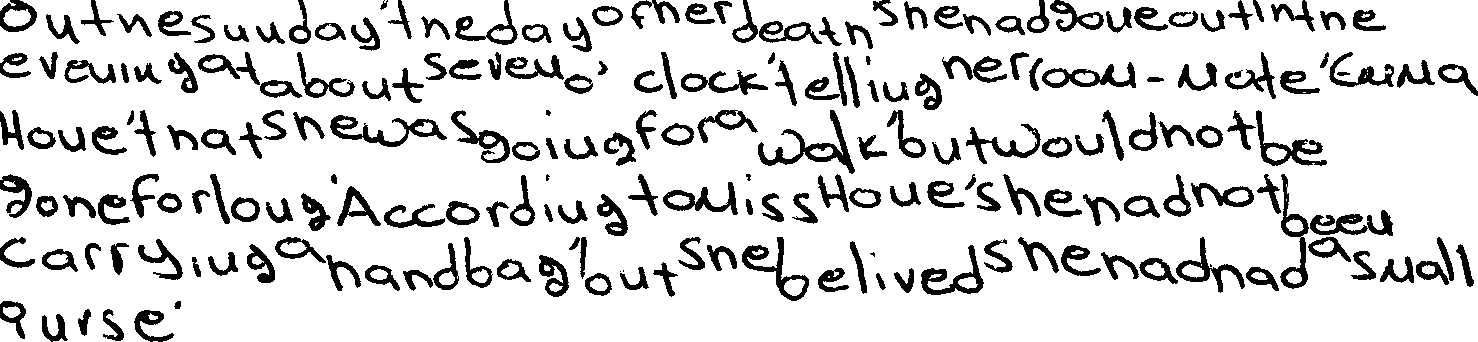 On the sunday, the day of her death, she had gone out in the
evening at about seven o' clock, telling her room-mate, Emma
Hone, that she was going for a walk, but would not be
gone for long. According to Miss Hone, she had not been
carrying a handbag, but she belived she had had a small
purse.